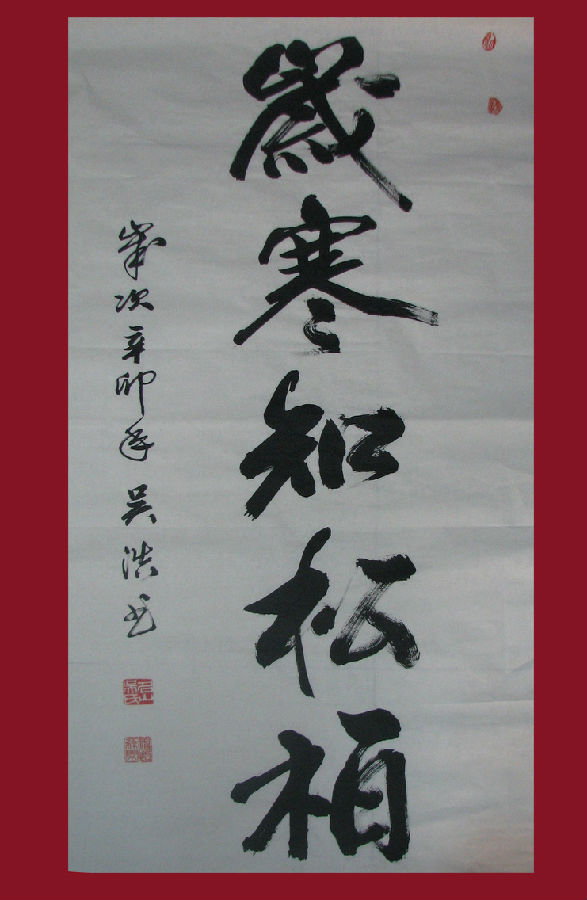 歲寒知松柏
歲次辛卯年 吴浩书